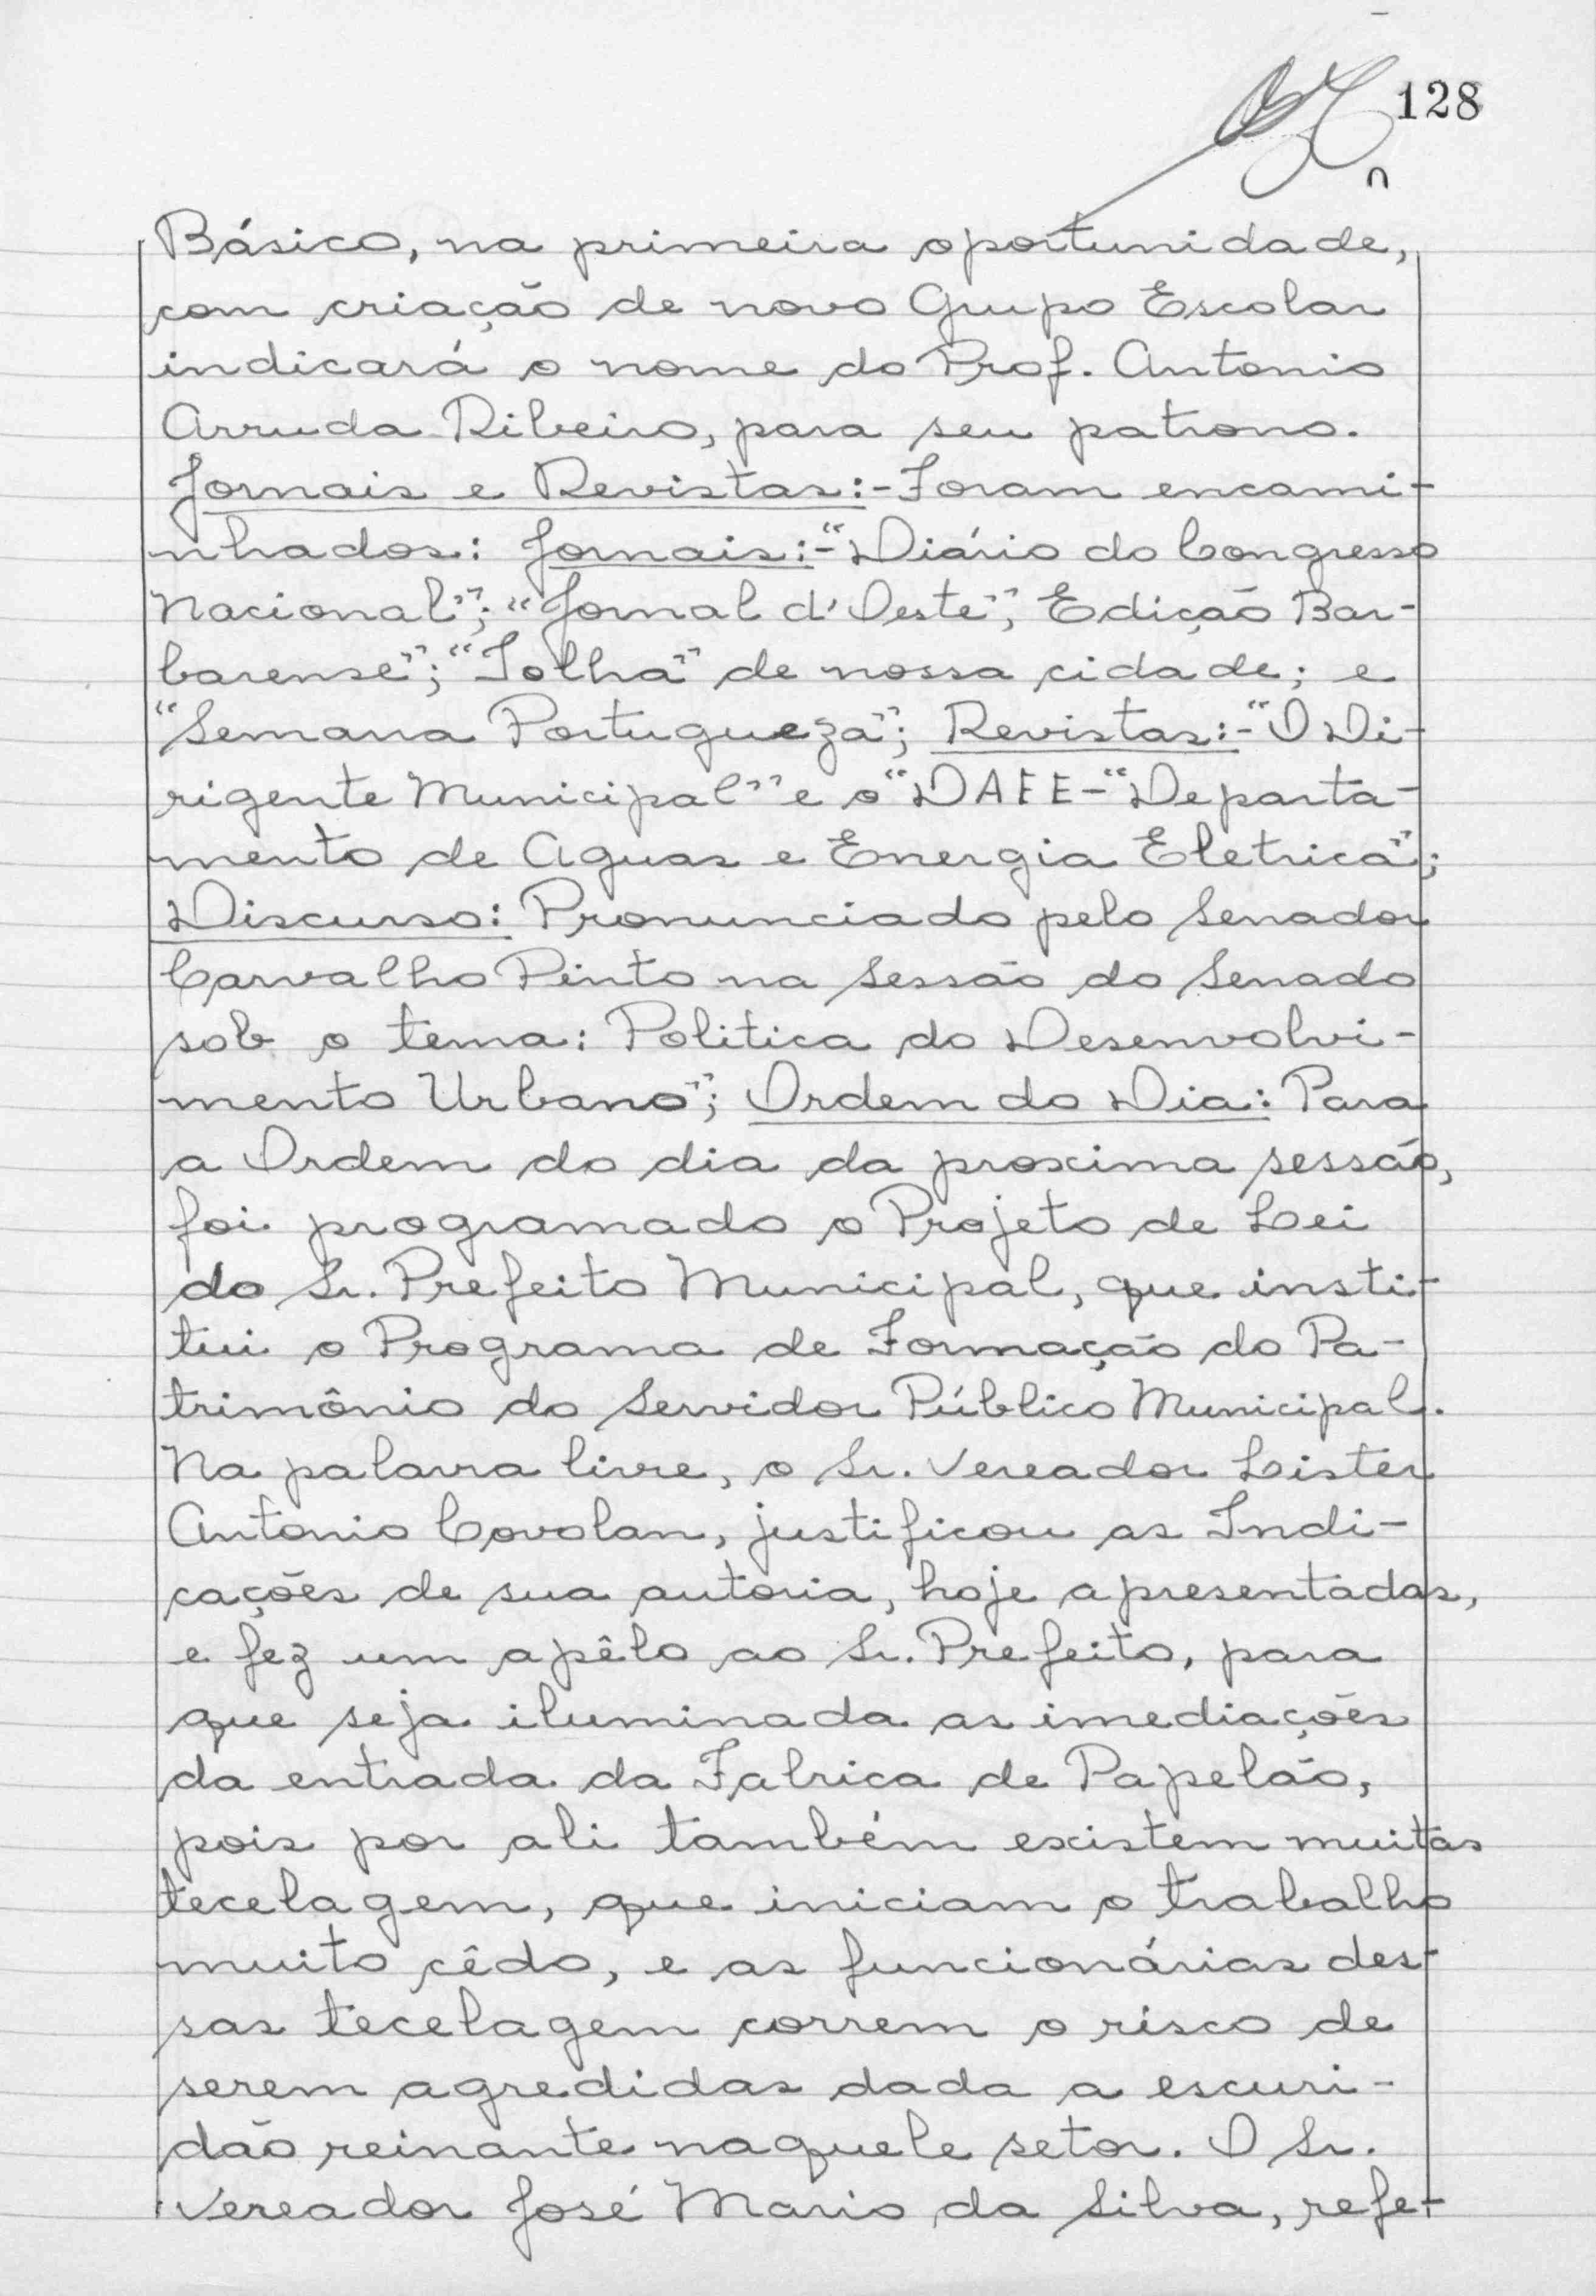 128
Básico, na primeira oportunidade,
com criação de novo Grupo Escolar
indicará o nome do Prof. Antonio
Arruda Ribeiro, para seu patrono.
Jornais e Revistas:- Foram encami-
nhados: Jornais:- "Diário do Congresso
Nacional"; "Jornal d'Oeste", Edição Bar-
barense"; "Folha" de nossa cidade; e
"Semana Portugueza"; Revistas:- "O Di-
rigente Municipal" e o "DAEE- "Departa-
mento de Aguas e Energia Eletrica";
Discurso: Pronunciado pelo Senador
Carvalho Pinto na Sessão do Senado
sob o tema: Politica do Desenvolvi-
mento Urbano"; Ordem do Dia: Para
a Ordem do dia da proxima sessão,
foi programado o Projeto de Lei
do Sr. Prefeito Municipal, que insti-
tui o Programa de Formação do Pa-
trimônio do Servidor Público Municipal.
Na palavra livre, o Sr. Vereador Lister
Antonio Covolan, justificou as Indi-
cações de sua autoria, hoje apresentadas,
e fez um apêlo ao Sr. Prefeito, para
que seja iluminada as imediações
da entrada da Fabrica de Papelão,
pois por ali também existem muitas
tecelagem, que iniciam o trabalho
muito cêdo, e as funcionárias des-
sas tecelagem correm o risco de
serem agredidas dada a escuri-
dão reinante naquele setor. O Sr.
Vereador José Mario da Silva, refe-